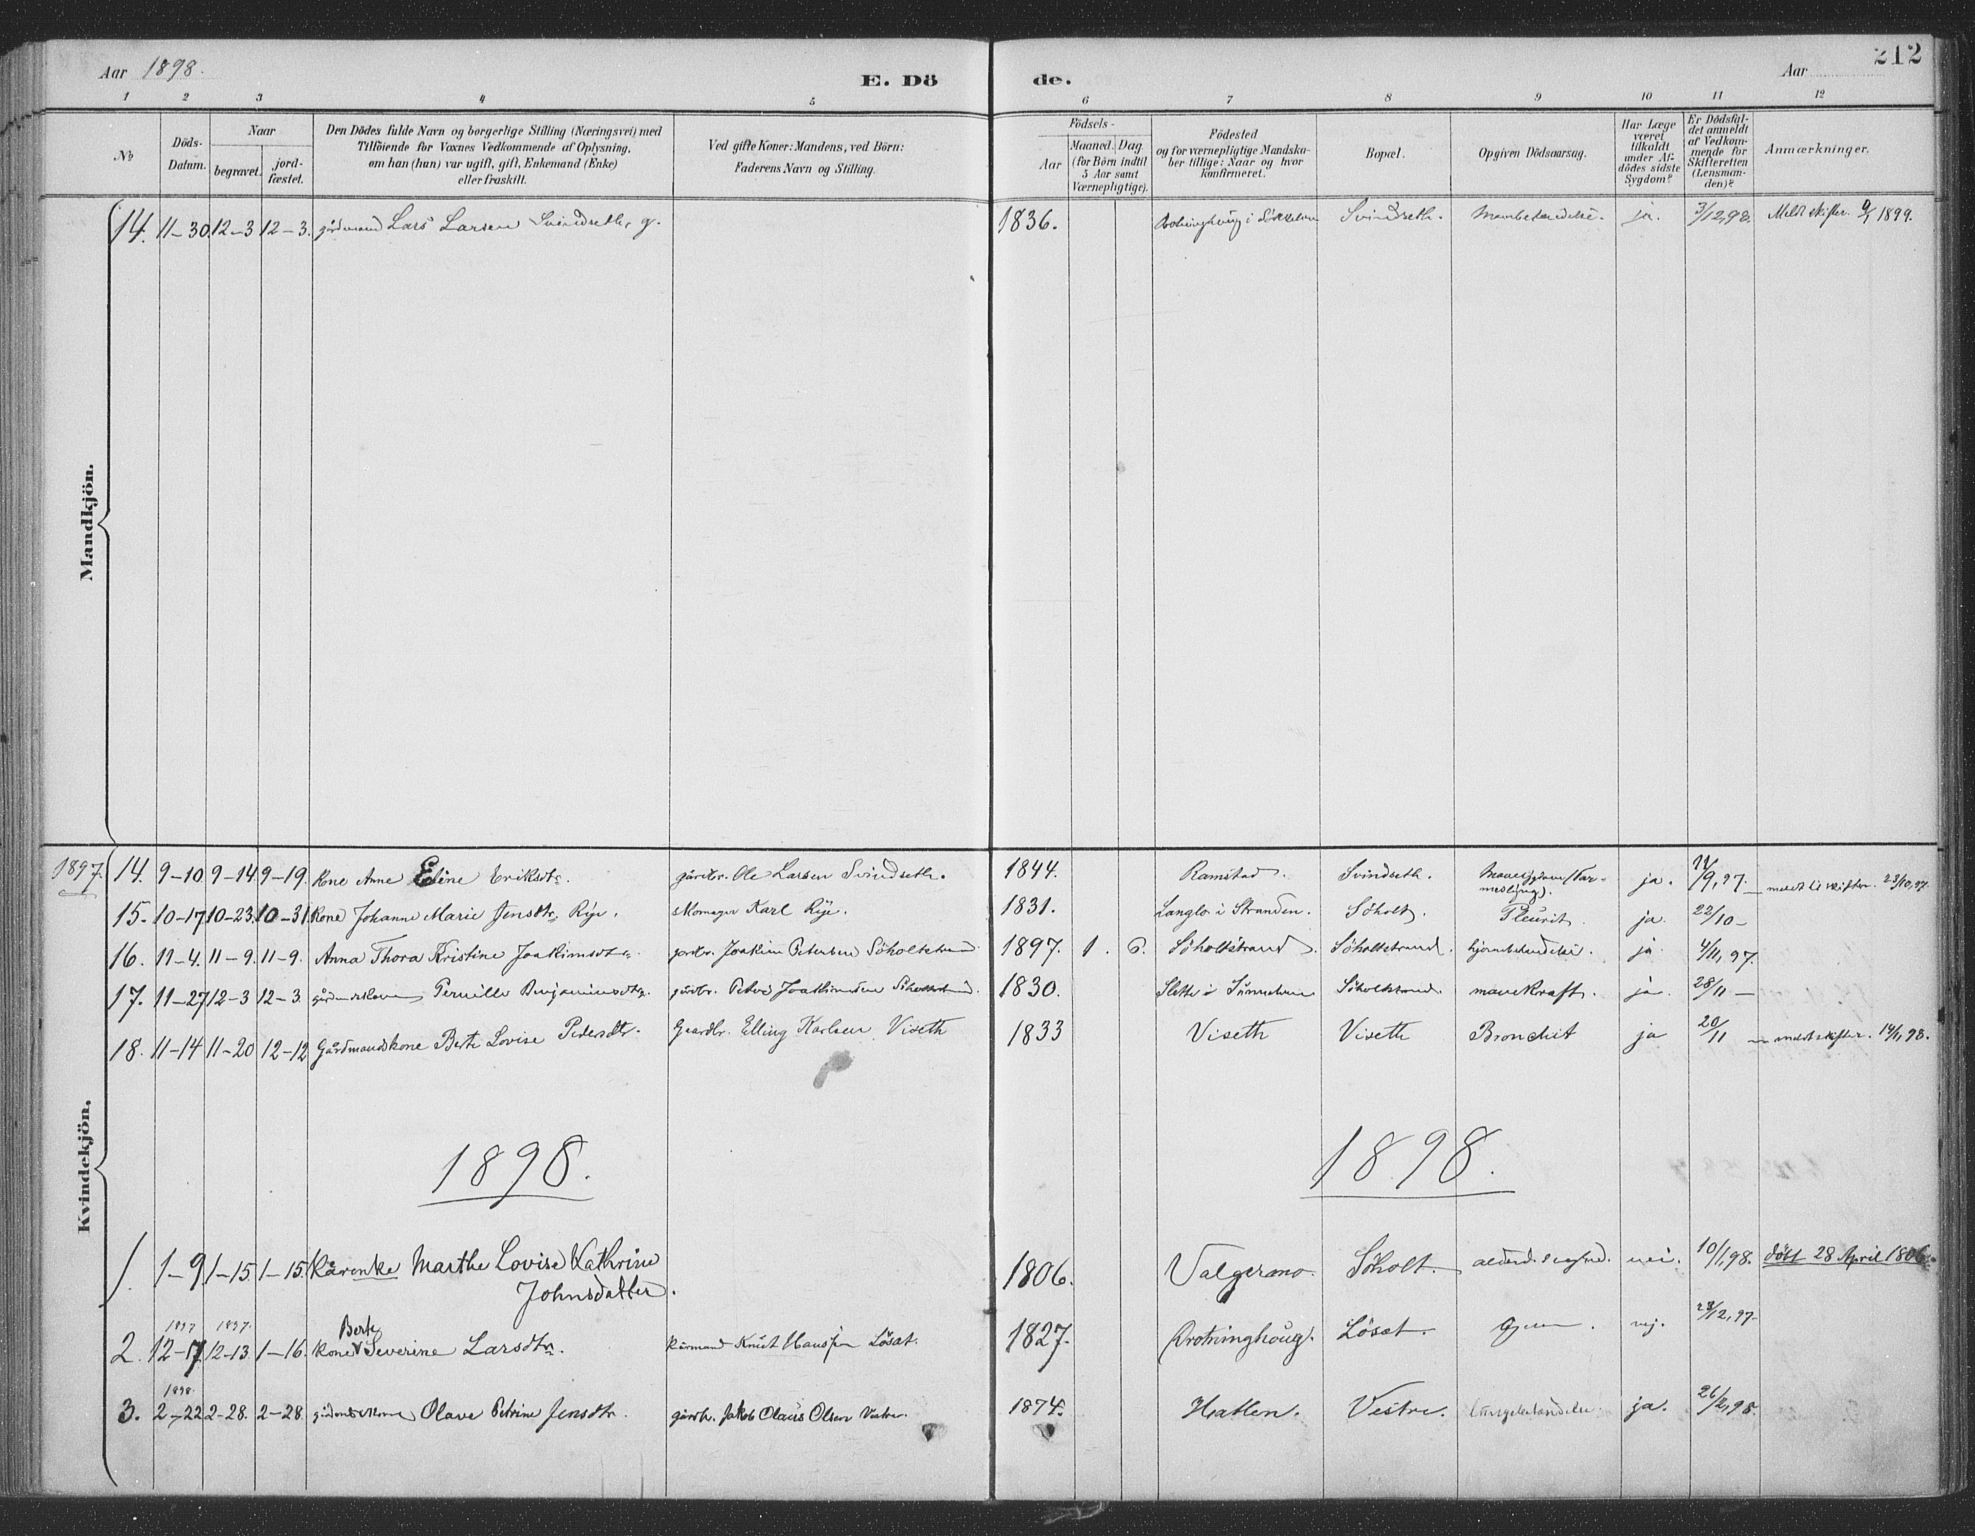 Aar 1898. E. Dö de. Aar 212
1 2 3 4 5 6 7 8 9 10 11 12
No
Döds-
Datum.
Naar
begravet.
jord-
fæstet.
Den Dödes fulde Navn og borgerlige Stilling (Næringsvei) med
Tilföiende for Voxnes Vedkommende af Oplysning,
om han (hun) var ugift, gift, Enkemand (Enke)
eller fraskilt.
Ved gifte Koner: Mandens, ved Börn:
Faderens Navn og Stilling.
Födsels-
Aar
Maaned. Dag
(for Börn indtil
5 Aar samt
Værnepligtige).
Födested
og for værnepligtige Mandska-
ber tillige: Naar og hvor
konfirmeret.
Bopæl.
Opgiven Dödsaarsag.
Har Læge
været
tilkaldt
under Af-
dödes sidste
Sygdom?
Er Dödsfal-
det anmeldt
af Vedkom-
mende for
Skifteretten
(Lensman-
den)?
Anmærkninger.
Mandkjön.
14. 11-30 12-3 12-3. gårdmand Lars Larsen Svindseth, g. 1836. Svindseth. ja. 3/12,98. Meldt skifter. 9/1 1899.
Kvindekjön.
1897. 14. 9-10 9-14 9-19. Kone Anne Eline Eriksdtr. gårdbr. Ole Larsen Svindseth. 1844. Ramstad. Svindseth. ja. meldt til skifter. 23/10,97.
15. 10-17 10-23 10-31 Kone Johanne Marie Jensdtr Rye. skomager Karl Rye. 1831. Langlo i Stranden. Söholt. Pleurit. ja. 22/10 -
16. 11-4. 11-9. 11-9. Anna Thora Kristine Joakimsdtr. gårdbr. Joakim Petersen Söholtstrand. 1897. 1. 6. Söholtstrand. Söholtstrand. ja. 4/11,97.
17. 11-27 12-3 12-3. gårdmdskone Pernille Benjaminsdtr. gårdbr. Joakimsen Söholtstrand. 1830. Slette i Söholtstrand. mavekræft. ja. 28/11 -
18. 11-14 11-20 12-12 Gårdmandskone Berte Lovise Pedersdtr. Gaardbr. Elling Karlsen Viseth 1833 Viseth Viseth Bronchit ja 20/11 - meldt skifter. 14/1,98.
1898. 1898.
1. 1-9 1-15 1-15 Kårenke Marthe Lovise Kathrine 1806. Valgermo. Söholt. nei. 10/1,98. född 28 April 1806.
Johnsdatter.
1897 1897. Berte
2. 12-17 12-13 1-16. Kone Severine Larsdtr. kårmand Knut Hansson Lösæt. 1827. Drotninghoug. Lösæt. nej.
1898.
3. 2-22 2-28. 2-28 gårdmdskone Olave Petrine Jensdtr. gårdbr. Jakob Olaus Olsen Vestre. 1874. Hatlen. Vestre. ja. 26/2,98.